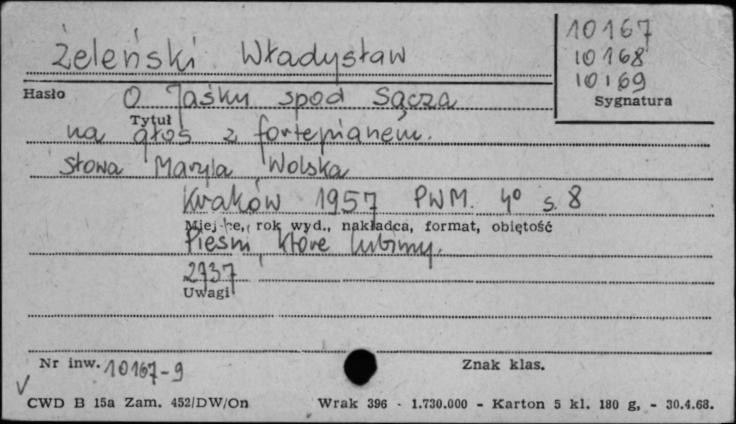 Żeleński Władysław
10167
10168
10169
Sygnatura
Hasło
O Jaśku spod Sącza
Tytuł
na głos z fortepianem.
słowa Maryla Wolska
Kraków 1957 PWM. 4° s. 8
Miejsce, rok wyd., nakładca, format, objętość
Pieśni, które lubimy.
2937
Uwagi
Nr inw. 10167-9
Znak klas.
√
CWD B 15a Zam. 452/DW/On
Wrak 396 - 1.730.000 - Karton 5 kl. 180 g, - 30.4.68.